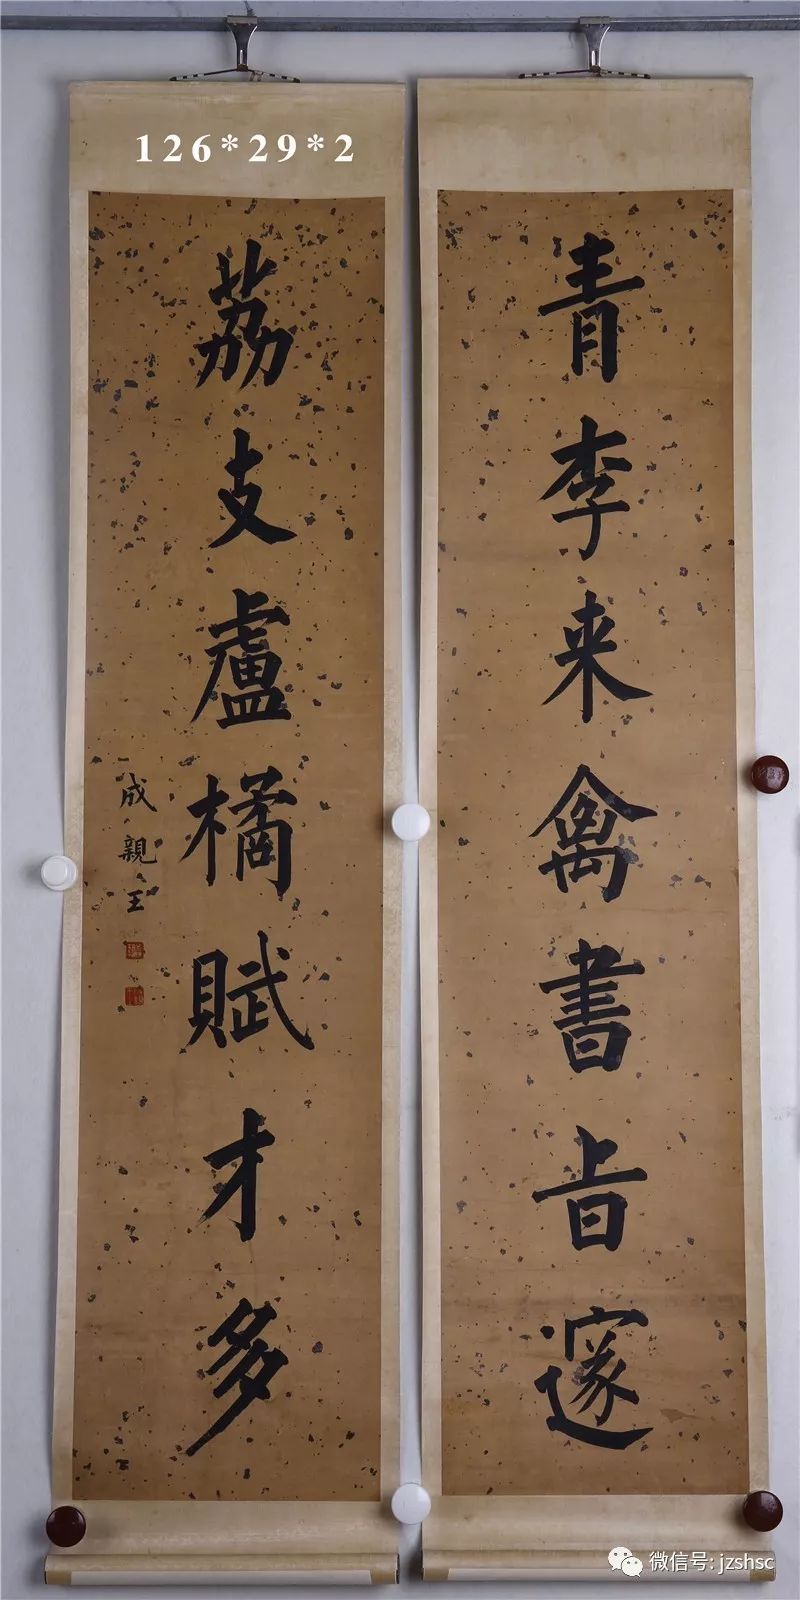 126*29*2
青李来禽書㫖邃
荔支盧橘賦才多
成親王
微信号: jzshsc